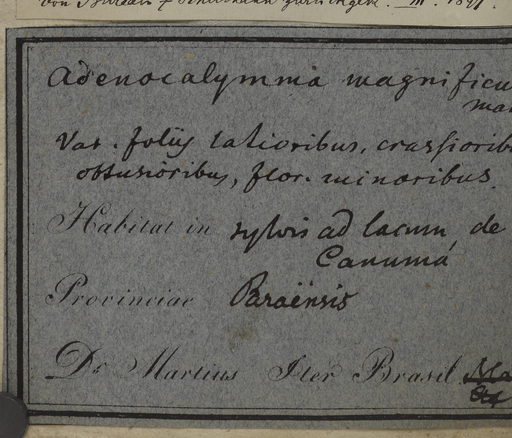 von Bureau & Schumann zurückgek. III. 1897.
Adenocalymma magnificu
mar
Var. foliis latioribus, crassioribu
obtusioribus, flor. minoribus.
Habitat in sylvis ad lacum de
Canumá
Provinciae Paraënsis
Dr Martius Iter Brasil